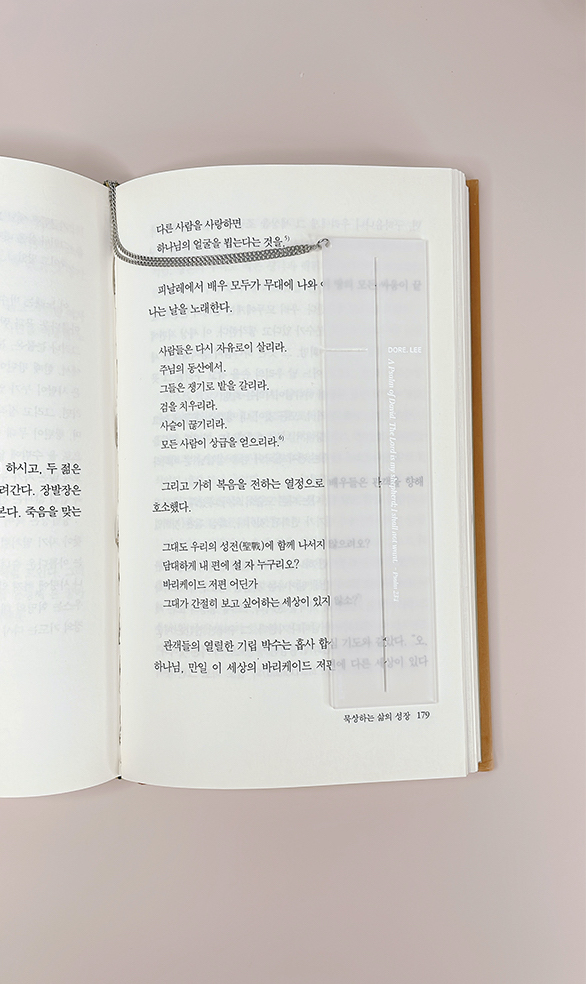 하시고, 두 젊은
려간다. 장발장은
본다. 죽음을 맞는
다른 사람을 사랑하면
하나님의 얼굴을 뵙는다는 것을.5)
피날레에서 배우 모두가 무대에 나와 이 땅의 모든 싸움이 끝
나는 날을 노래한다.
사람들은 다시 자유로이 살리라.
주님의 동산에서.
그들은 쟁기로 밭을 갈리라.
검을 치우리라.
사슬이 끊기리라.
모든 사람이 상금을 얻으리라.6)
그리고 가히 복음을 전하는 열정으로 배우들은 관객을 향해
호소했다.
그대도 우리의 성전(聖戰)에 함께 나서지 않으려오?
담대하게 내 편에 설 자 누구리오?
바리케이드 저편 어딘가
그대가 간절히 보고 싶어하는 세상이 있지 않소?
관객들의 열렬한 기립 박수는 흡사 합심 기도와 같았다. "오,
하나님, 만일 이 세상의 바리케이드 저편에 다른 세상이 있다
묵상하는 삶의 성장 179
DORE. LEE
A Psalm of David. The Lord is my shepherd, I shall not want.